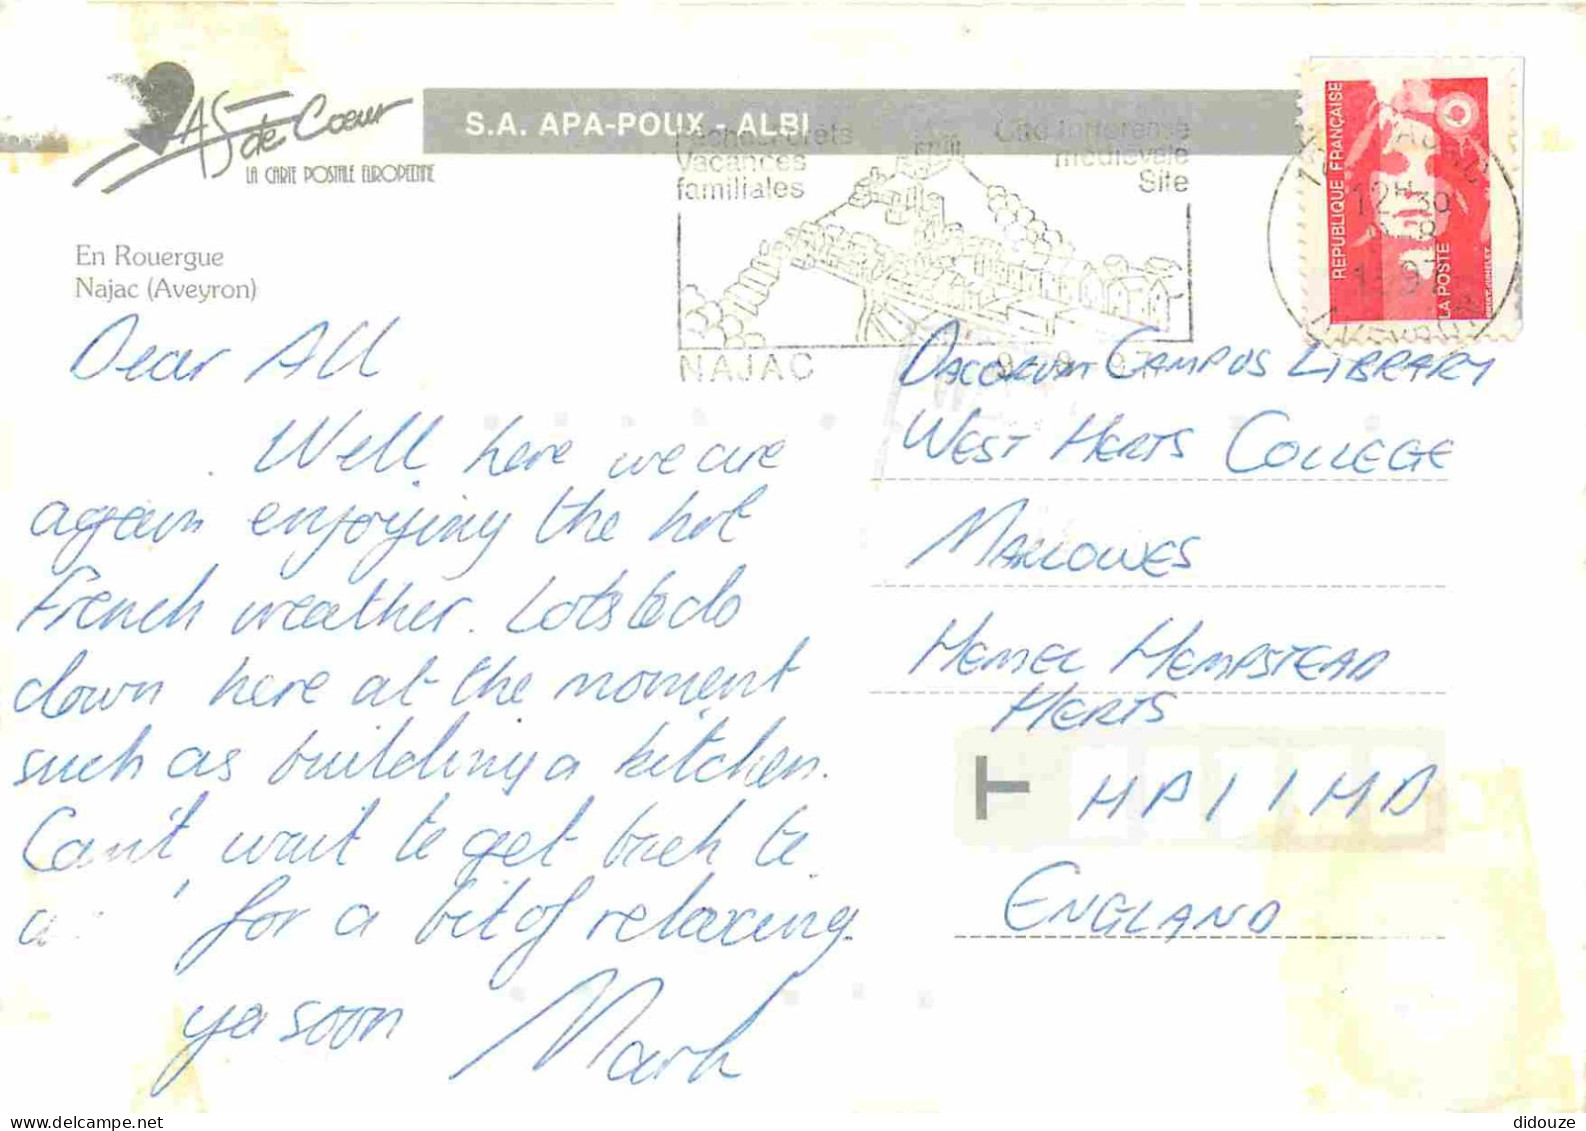 As de Coeur
LA CARTE POSTALE EUROPEENNE
S.A. APA-POUX - ALBI
En Rouergue
Najac (Aveyron)
Vacances
familiales
médiévale
Site
NAJAC
9 -8 -97
REPUBLIQUE FRANÇAISE
LA POSTE
12H30
-8
1997
AVEYRON
Dear All
Well, here we are
again enjoying the hot
French weather. Lots to do
down here at the moment,
such as building a kitchen.
Can't wait to get back to
for a bit of relaxing.
ya soon
Mark
DACORUM CAMPUS LIBRARY
WEST HERTS COLLEGE
MARLOWES
HEMEL HEMPSTEAD
HERTS
T
HP1 1HD
ENGLAND
delcampe.net
didouze